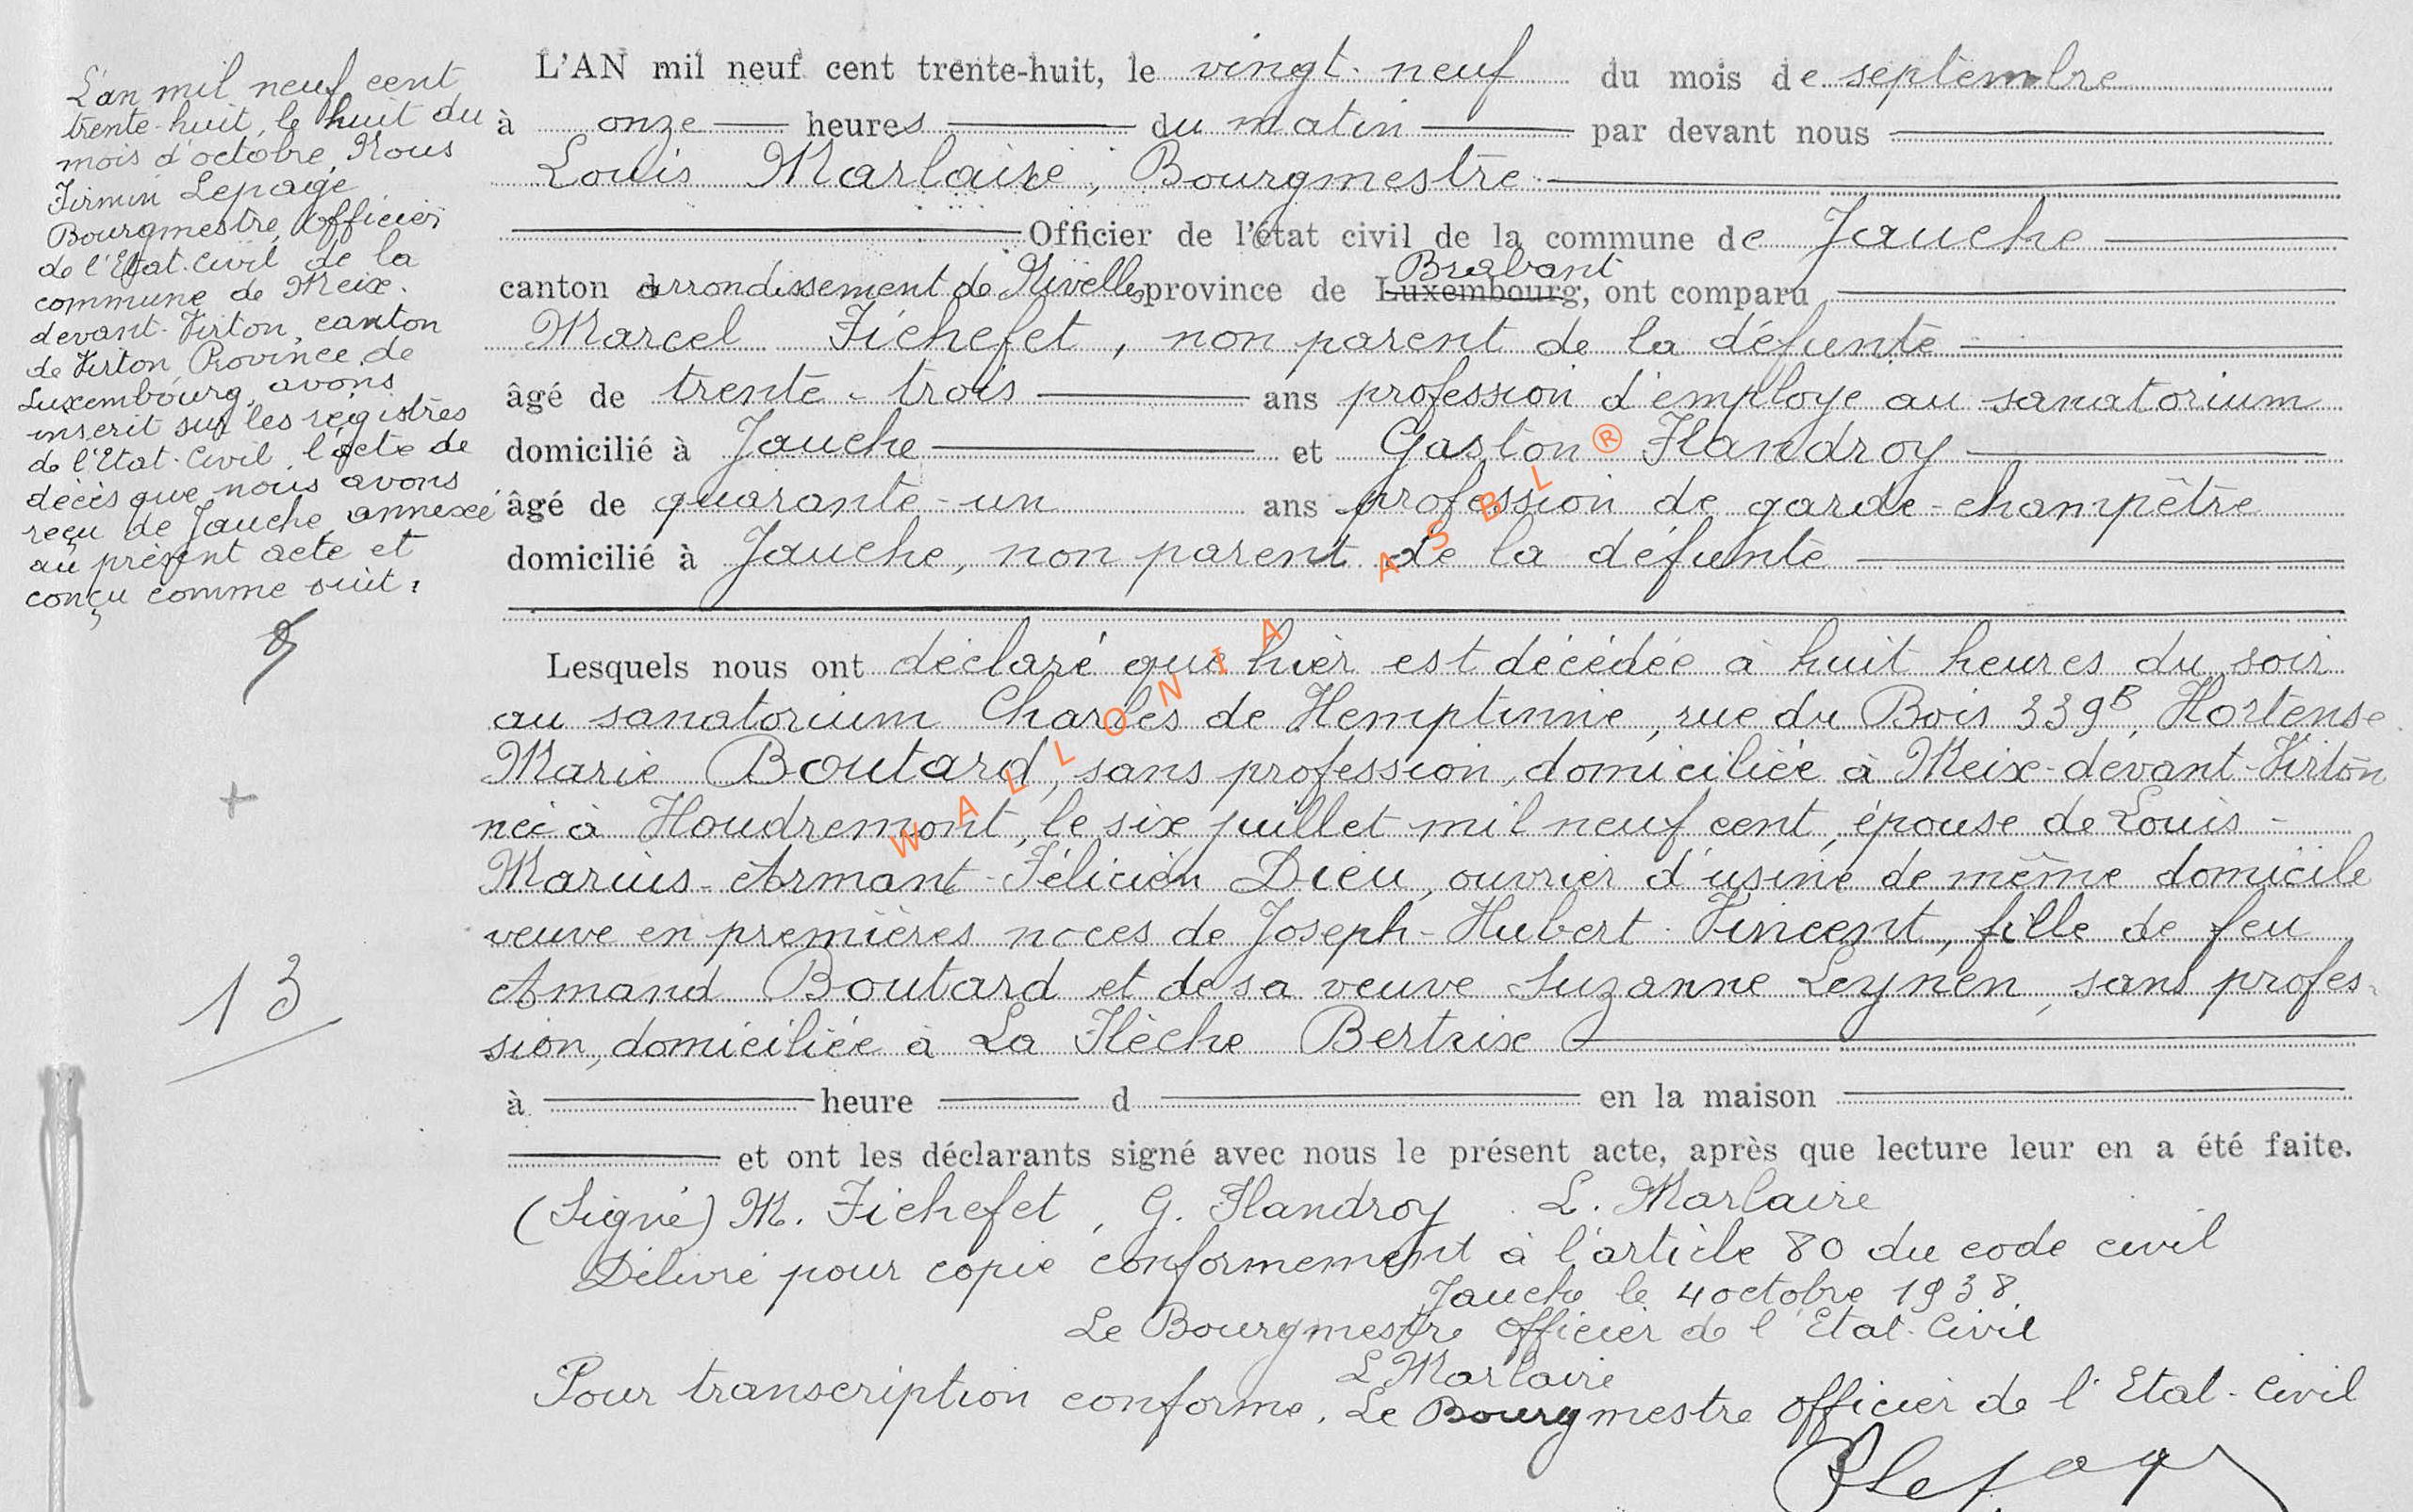 L'an mil neuf cent
trente-huit, le huit du
mois d'octobre, Nous
Firmin Lepage
Bourgmestre, Officier
de l'Etat-Civil de la
commune de Meix-
devant-Virton, canton
de Virton Province de
Luxembourg, avons
inscrit sur les registres
de l'Etat-Civil, l'acte de
décès que nous avons
reçu de Jauche, annexé
au présent acte et
conçu comme suit:
13
L'AN mil neuf cent trente-huit, le vingt-neuf du mois de septembre
à onze heures du matin par devant nous
Louis Marlaire, Bourgmestre
Officier de l'état civil de la commune de Jauche
Brabant
canton arrondissement de Nivelles province de Luxembourg, ont comparu
Marcel Fichefet, non parent de la défunte
âgé de trente-trois ans profession d'employe au sanatorium
domicilié à Jauche et Gaston Flandroy
âgé de quarante-un ans profession de garde-champêtre
domicilié à Jauche, non parent de la défunte
Lesquels nous ont déclaré que hier est décédée à huit heures du soir
au sanatorium Charles de Hemptinne, rue du Bois 339B, Hortense
Marie Boutard, sans profession, domiciliée à Meix-devant-Virton
née à Houdremont, le six juillet mil neuf cent, épouse de Louis-
Marius-Armant-Félicien Dieu, ouvrier d'usine de même domicile
veuve en premières noces de Joseph-Hubert-Vincent, fille de feu
Amand Boutard et de sa veuve Suzanne Leynen, sans profes-
sion, domiciliée à La Flèche Bertrix
à heure d en la maison
et ont les déclarants signé avec nous le présent acte, après que lecture leur en a été faite.
(Signé) M. Fichefet, G. Flandroy. L. Marlaire
Délivré pour copie conformement à l'article 80 du code civil
Jauche le 4 octobre 1938.
Le Bourgmestre Officier de l'Etat-Civil
L Marlaire
Pour transcription conforme. Le Bourgmestre officier de l'Etat-Civil
WALLONIA ASBL ®